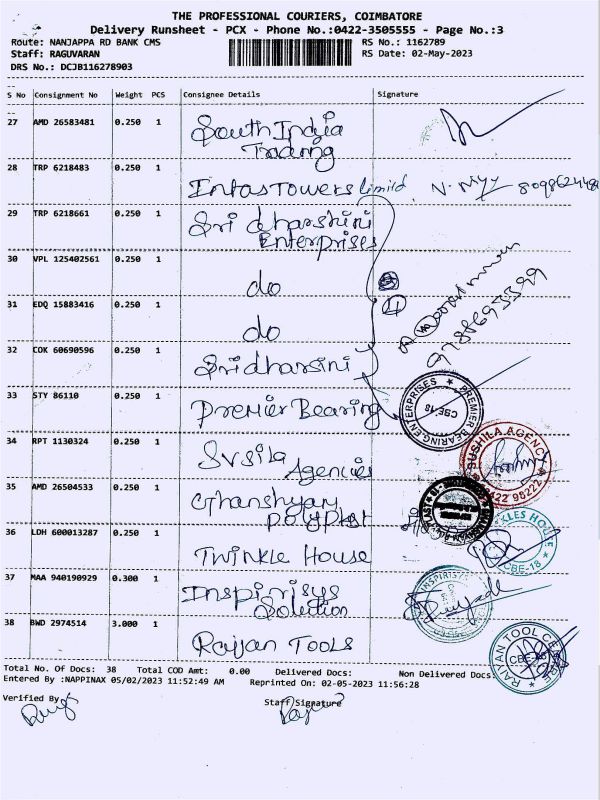 THE PROFESSIONAL COURIERS, COIMBATORE
Delivery Runsheet - PCX - Phone No.:0422-3505555 - Page No.:3
Route: NANJAPPA RD BANK CMS RS No.: 1162789
Staff: RAGUVARAN RS Date: 02-May-2023
DRS No.: DCJB116278903
S No Consignment No Weight PCS Consignee Details Signature
27 AMD 26583481 0.250 1 South India
Trading
28 TRP 6218483 0.250 1 Intas Towers Limild 8098624484
29 TRP 6218661 0.250 1 Sri dharshini
Enterprises
30 VPL 125402561 0.250 1 do
31 EDQ 15883416 0.250 1 do
4
9788693399
32 COK 60690596 0.250 1 Sridharsini
33 STY 86110 0.250 1 Premier Bearing
PREMIER BEARING ENTERPRISES
CBE-18
34 RPT 1130324 0.250 1 Susila
Agencies
SUSHILA AGENCY
35 AMD 26504533 0.250 1 Ghanshyam
Polyplast
36 LDH 600013287 0.250 1 Twinkle House
KLES HOUSE
CBE-18
37 MAA 940190929 0.300 1 Inspirisys
Solection
INSPIRIS
38 BWD 2974514 3.000 1 Rajjan Tools
RAJJAN TOOL CENTRE
CBE-18
Total No. Of Docs: 38 Total COD Amt: 0.00 Delivered Docs: Non Delivered Docs:
Entered By :NAPPINAX 05/02/2023 11:52:49 AM Reprinted On: 02-05-2023 11:56:28
Verified By Staff Signature